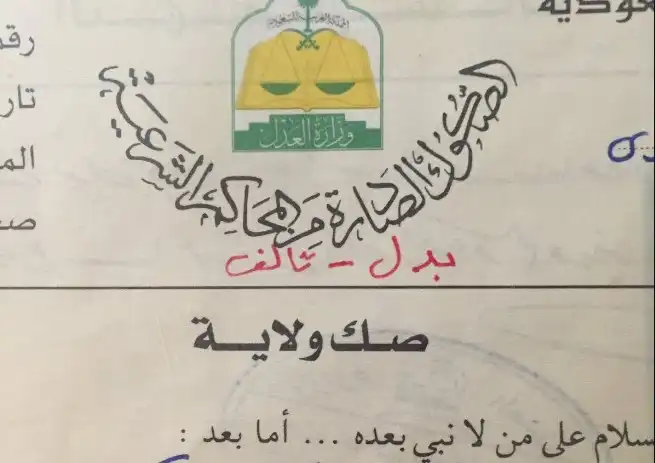 عودية
المملكة العربية السعودية
رقم
وزارة العدل
تار
الم
صف
الصكوك الصادرة من المحاكم الشرعية
بدل - تالف
صك ولاية
سلام على من لا نبي بعده ... أما بعد :